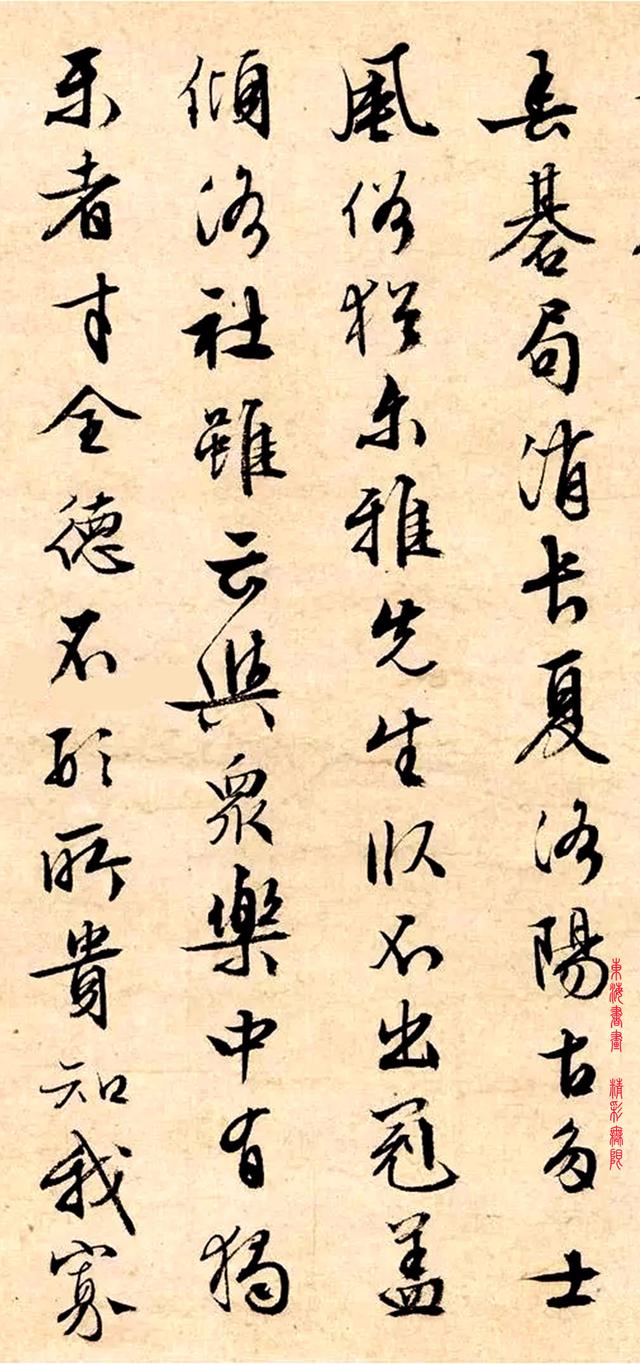 春碁局消长夏洛陽古多士
風俗猶尔雅先生卧不出冠盖
傾洛社雖云與衆樂中有獨
乐者才全德不形所貴知我寡
東海書畫 精彩無限